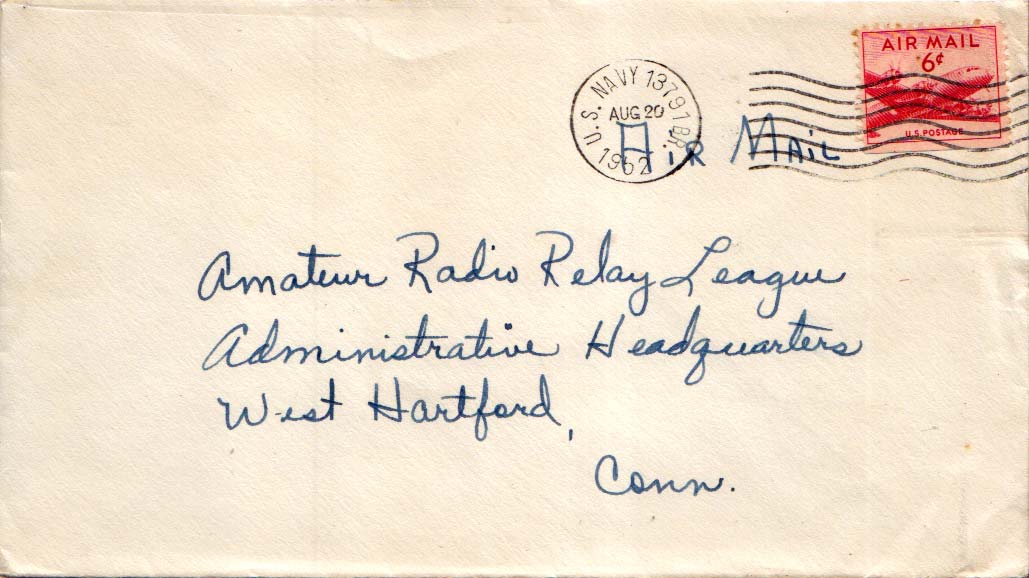 AIR MAIL
6¢
U.S. POSTAGE
U.S. NAVY 13791 BR.
AUG 20
1952
AIR MAIL
Amateur Radio Relay League
Administrative Headquarters
West Hartford,
Conn.